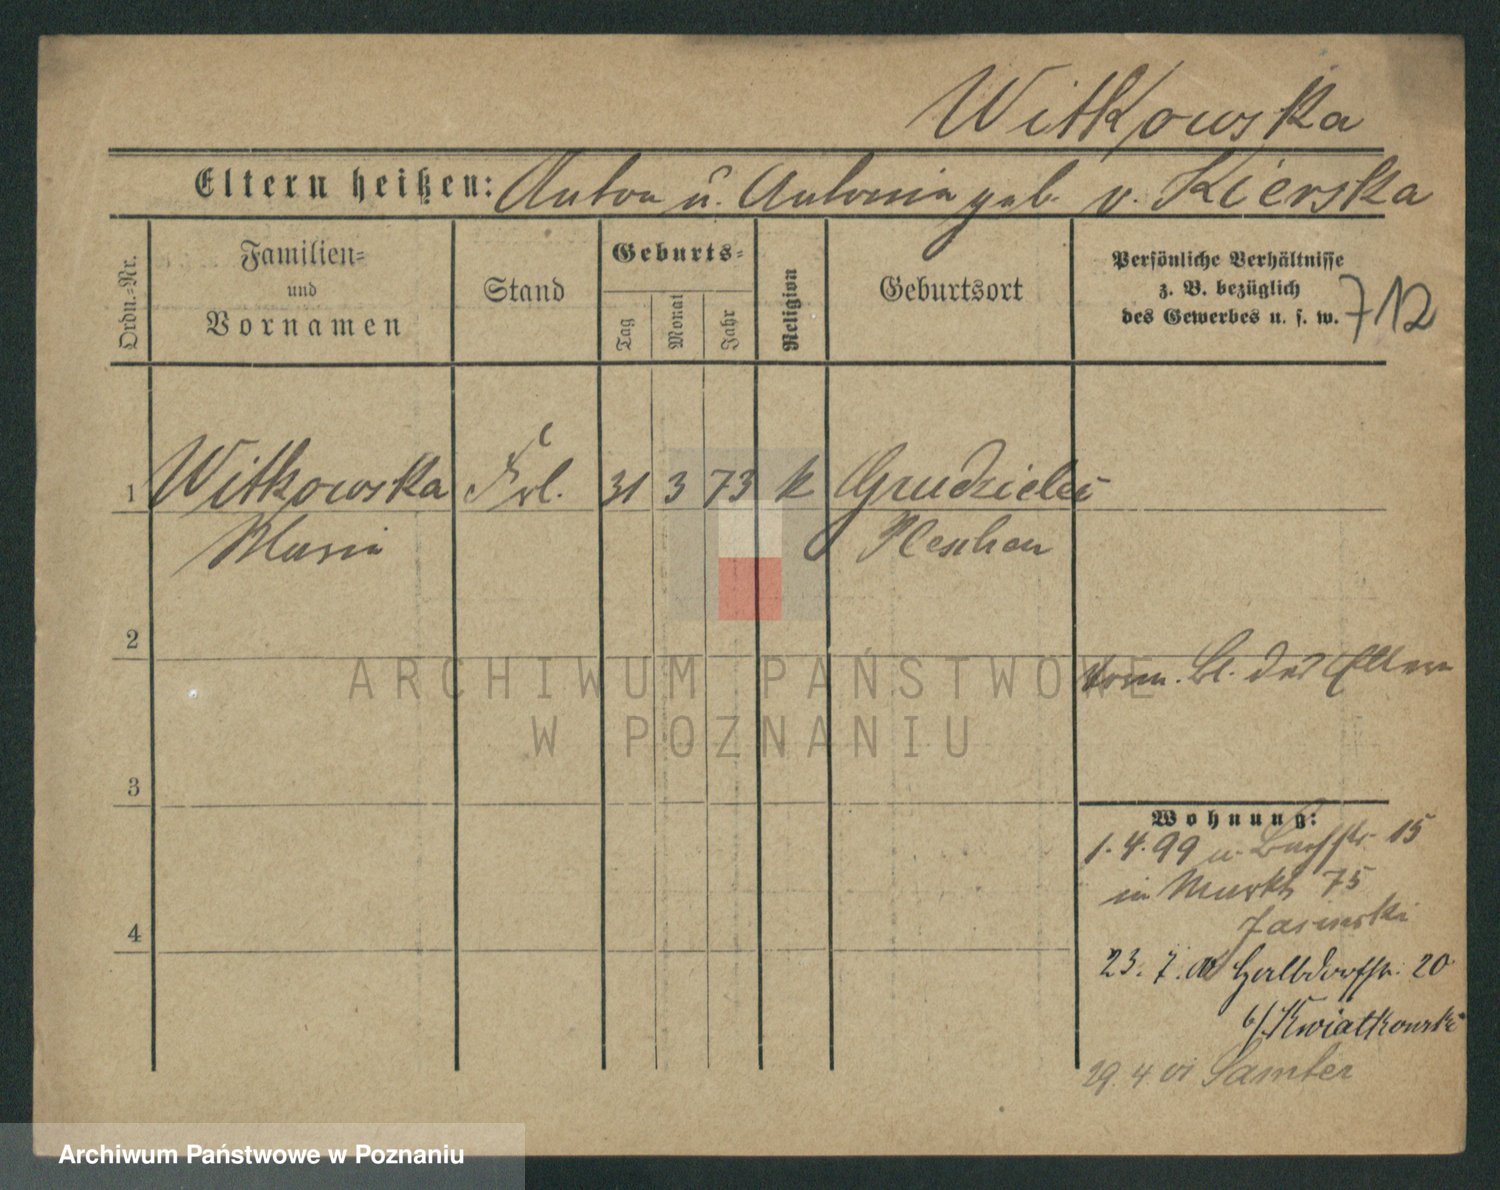 Witkowska
Eltern heißen: Anton u. Antonia geb. v. Kierska
Ordn.-Nr.
Familien-
und
Vornamen
Stand
Geburts-
Tag
Monat
Jahr
Religion
Geburtsort
Persönliche Verhältnisse
z. B. bezüglich
des Gewerbes u. s. w.
712
1 Witkowska Frl. 31 3 73 k Grudzielec
Maria Pleschen
2
vorm. Bl. der Eltern
ARCHIWUM PAŃSTWOWE
W POZNANIU
3
Wohnung:
1. 4. 99 u. 15
in Markt 75
Jasinski
4
23. 7. 00 Halbdorfstr. 20
b/ Kwiatkowski
29. 4. 01 Samter
Archiwum Państwowe w Poznaniu